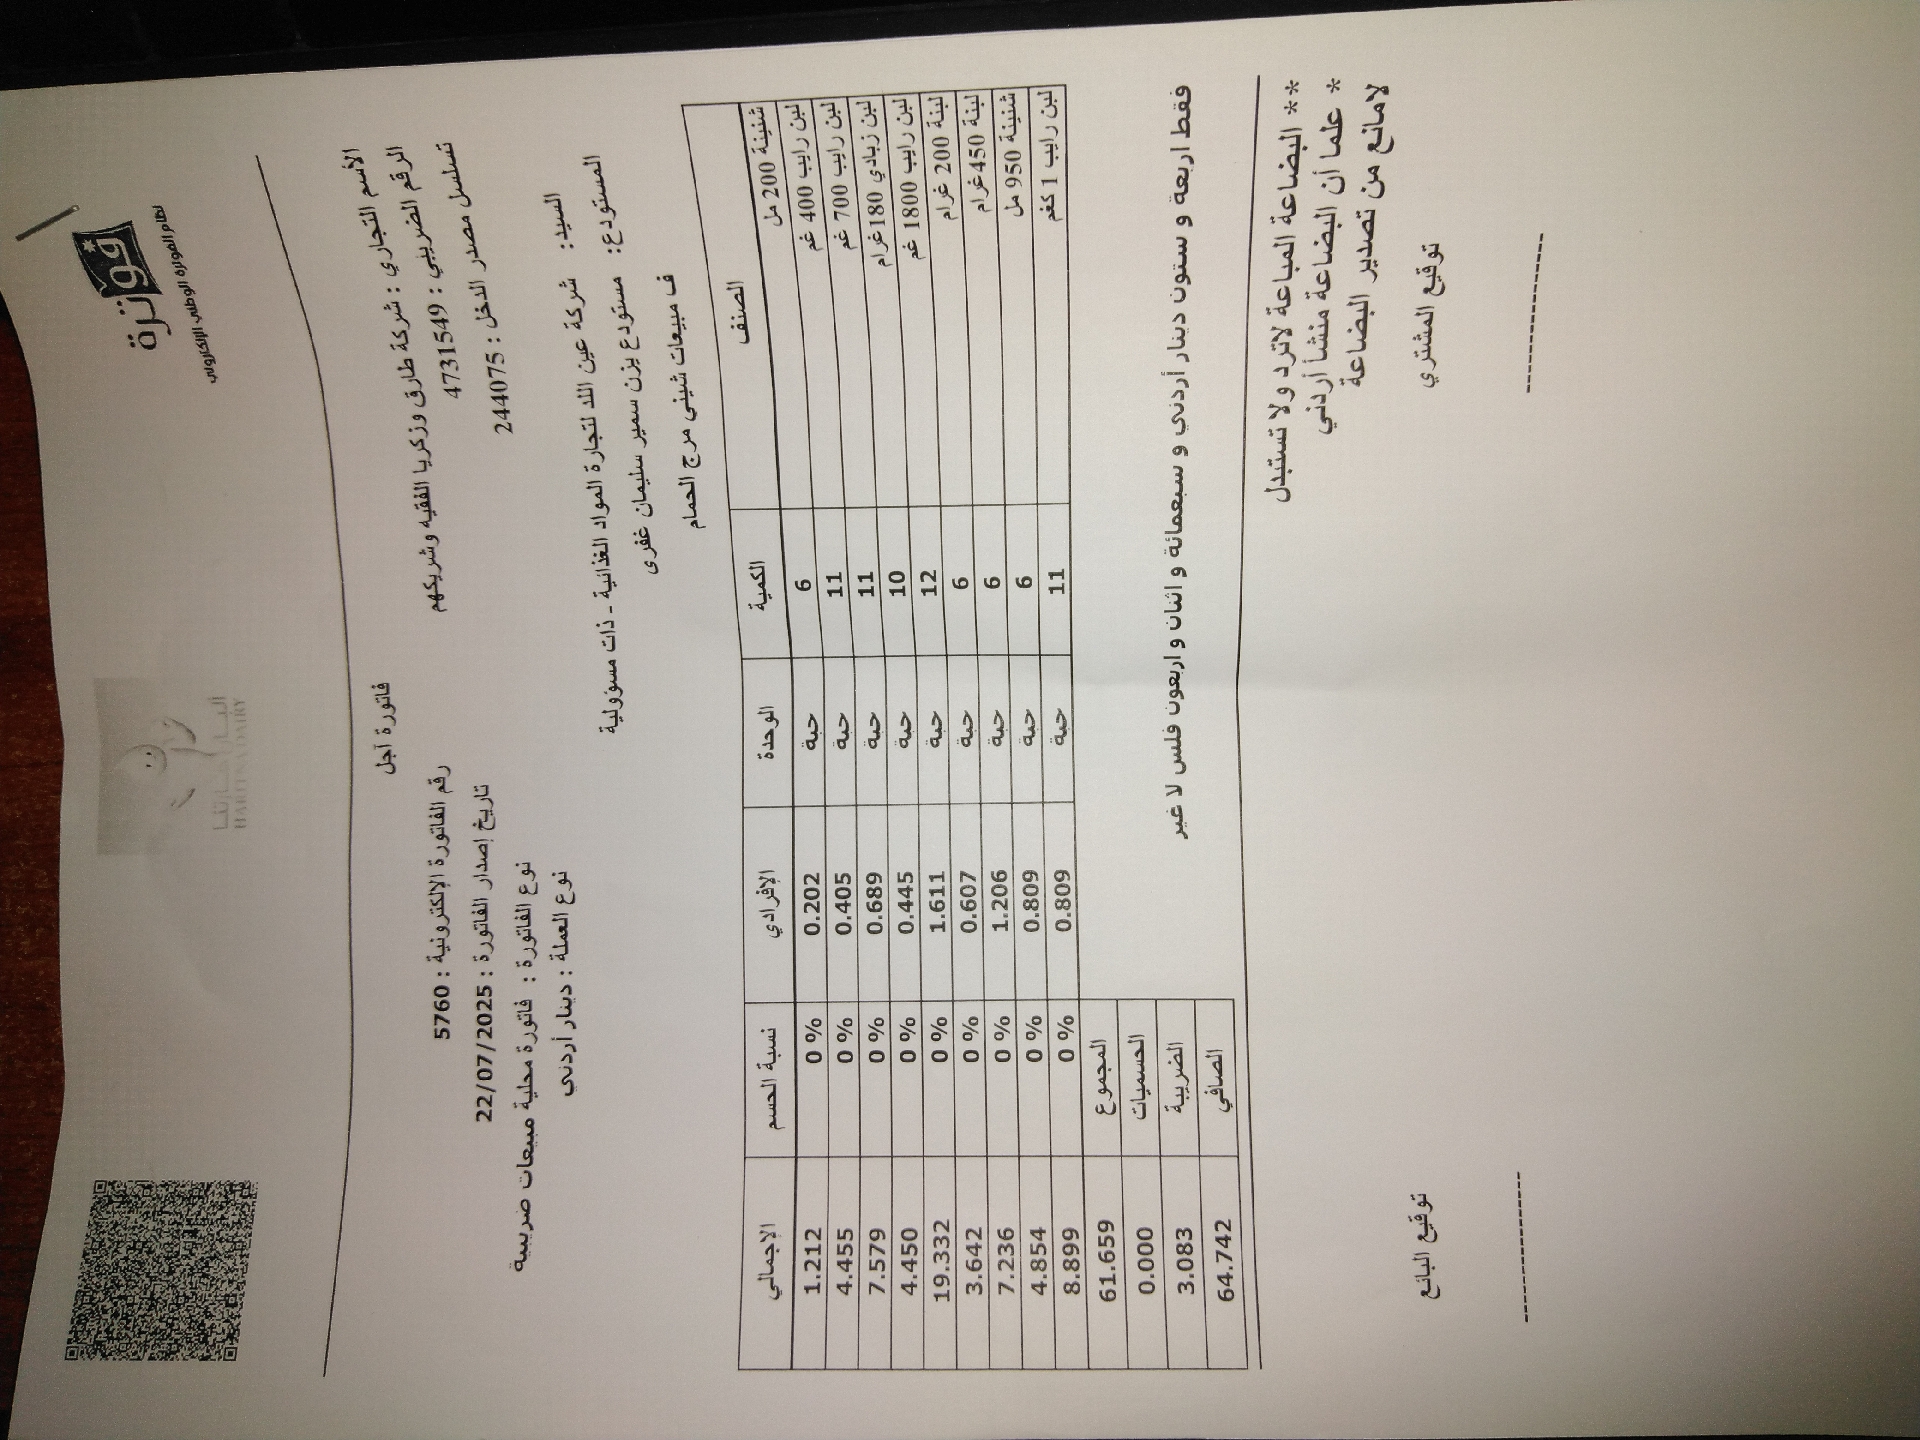 فوترة
نظام الفوترة الوطني الإلكتروني
البان حارتنا
HARITNA DAIRY
فاتورة آجل
الأسم التجاري : شركة طارق وزكريا الفقيه وشريكهم
الرقم الضريبي : 4731549
رقم الفاتورة الإلكترونية : 5760
تسلسل مصدر الدخل : 244075
تاريخ إصدار الفاتورة : 22/07/2025
نوع الفاتورة : فاتورة محلية مبيعات ضريبية
السيد: شركة عين اللد لتجارة المواد الغذائية - ذات مسؤولية
نوع العملة : دينار أردني
المستودع: مستودع يزن سمير سليمان غفرى
ف مبيعات شيني مرج الحمام
الصنف الكمية الوحدة الإفرادي نسبة الحسم الاجمالي
شنينة 200 مل 6 حبة 0.202 0 % 1.212
لبن رايب 400 غم 11 حبة 0.405 0 % 4.455
لبن رايب 700 غم 11 حبة 0.689 0 % 7.579
لبن زبادي 180 غرام 10 حبة 0.445 0 % 4.450
لبن رايب 1800 غم 12 حبة 1.611 0 % 19.332
لبنة 200 غرام 6 حبة 0.607 0 % 3.642
لبنة 450 غرام 6 حبة 1.206 0 % 7.236
شنينة 950 مل 6 حبة 0.809 0 % 4.854
لبن رايب 1 كغم 11 حبة 0.809 0 % 8.899
المجموع 61.659
الحسميات 0.000
الضريبة 3.083
الصافي 64.742
فقط اربعة و ستون دينار أردني و سبعمائة و اثنان و اربعون فلس لا غير
** البضاعة المباعة لاترد ولا تستبدل
* علما أن البضاعة منشأ أردني
لامانع من تصدير البضاعة
توقيع المشتري توقيع البائع